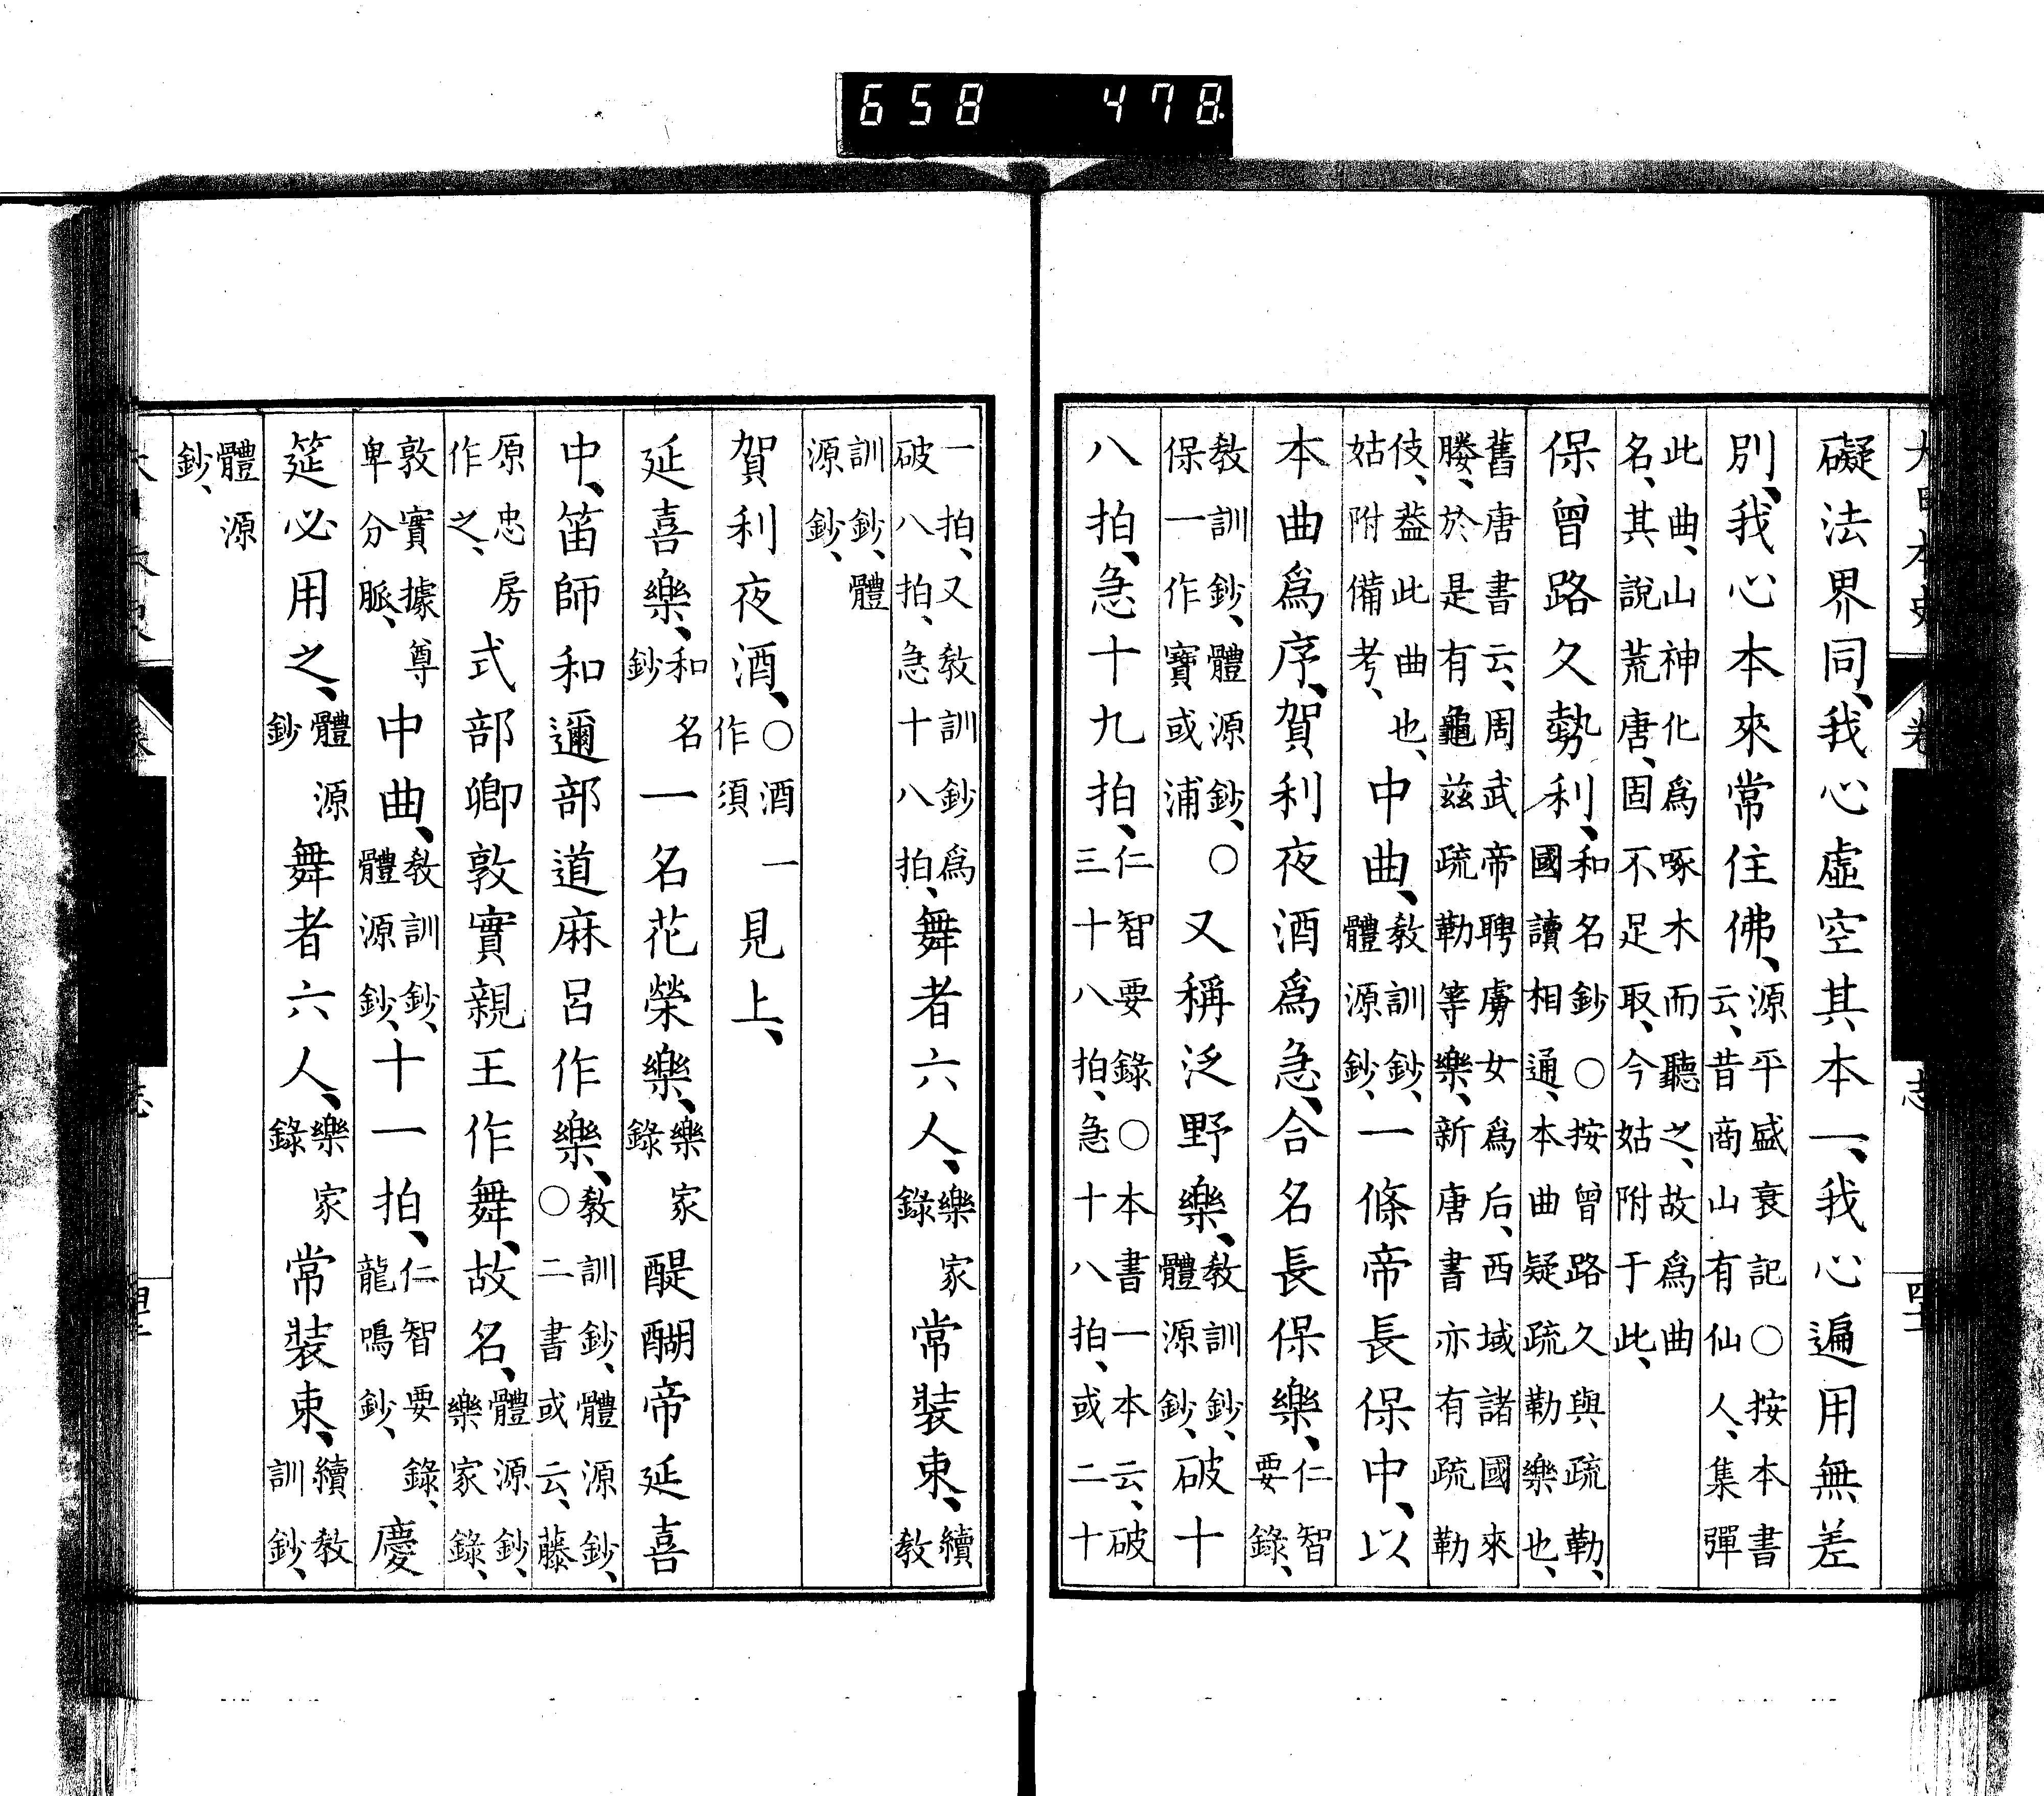 礙法界同、我心虚空其本一、我心遍用無差
別、我心本來常住佛、源平盛衰記○按本書云、昔商山有仙人、集彈
此曲、山神化爲啄木而聽之、故爲曲名、其說荒唐、固不足取、今姑附于此、
保曾路久勢利、和名鈔○按曾路久與疏勒、國讀相通、本曲疑疏勒樂也、
舊唐書云、周武帝聘虜女爲后、西域諸國來媵、於是有龜兹疏勒等樂、新唐書亦有疏勒
伎、葢此曲也、姑附備考、中曲、教訓鈔、體源鈔、一條帝長保中、以
本曲爲序、賀利夜酒爲急、合名長保樂、仁智要錄、
教訓鈔、體源鈔、○保一作寶或浦又稱泛野樂、教訓鈔、體源鈔、破十
八拍、急十九拍、仁智要錄○本書一本云、破三十八拍、急十八拍、或二十
一拍、又教訓鈔爲破八拍、急十八拍、舞者六人、樂家錄常裝束、續教
訓鈔、體源鈔、
賀利夜酒、○酒一作須見上、
延喜樂、和名鈔一名花榮樂、樂家錄醍醐帝延喜
中、笛師和邇部道麻呂作樂、教訓鈔、體源鈔、○二書或云、藤
原忠房作之、式部卿敦實親王作舞、故名、體源鈔、樂家錄、
敦實據尊卑分脈、中曲、教訓鈔、體源鈔、十一拍、仁智要錄、龍鳴鈔、慶
筵必用之、體源鈔舞者六人、樂家錄常裝束、續教訓鈔、
體源鈔、
658 478